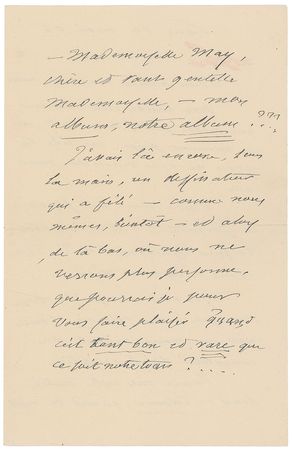 — Mademoiselle May,
chère et tant gentille
Mademoiselle, — mon
album, notre album ???
J'avais là encore, sous
la main, un dessinateur
qui a filé — comme nous
mêmes, bientôt — et alors
de là bas, où nous ne
verrons plus personne,
que pourrais-je pour
vous faire plaisir quand
c'est tant bon et rare que
ce soit notre tour ? . . . . .